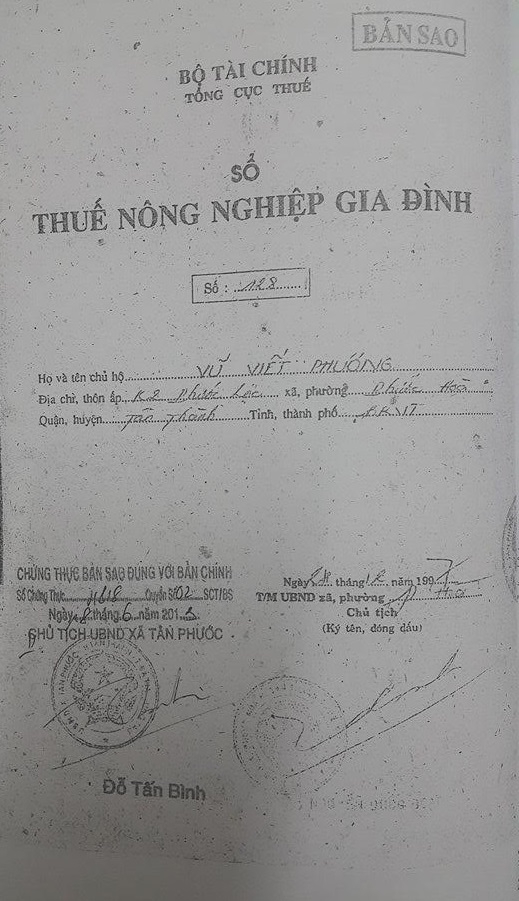 BẢN SAO
BỘ TÀI CHÍNH
TỔNG CỤC THUẾ
SỔ
THUẾ NÔNG NGHIỆP GIA ĐÌNH
Số : 128
Họ và tên chủ hộ VŨ VIẾT PHƯƠNG
Địa chỉ, thôn ấp K2 Phước Lộc xã, phường Phước Hoà
Quận, huyện Tân Thành Tỉnh, thành phố BRVT
CHỨNG THỰC BẢN SAO ĐÚNG VỚI BẢN CHÍNH
Số Chứng Thực Quyển Số 02 SCT/BS
Ngày 8 tháng 6 năm 201
CHỦ TỊCH UBND XÃ TÂN PHƯỚC
Đỗ Tấn Bình
Ngày tháng 12 năm 199
T/M UBND xã, phường P Hoà
Chủ tịch
(Ký tên, đóng dấu)